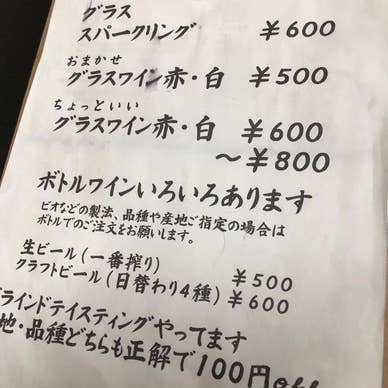 グラス
スパークリング ¥600
おまかせ
グラスワイン赤・白 ¥500
ちょっといい
グラスワイン赤・白 ¥600
〜¥800
ボトルワインいろいろあります
ビオなどの製法、品種や産地ご指定の場合は
ボトルでのご注文をお願いします。
生ビール(一番搾り) ¥500
クラフトビール(日替わり4種) ¥600
ラインドテイスティングやってます
地・品種どちらも正解で100円off